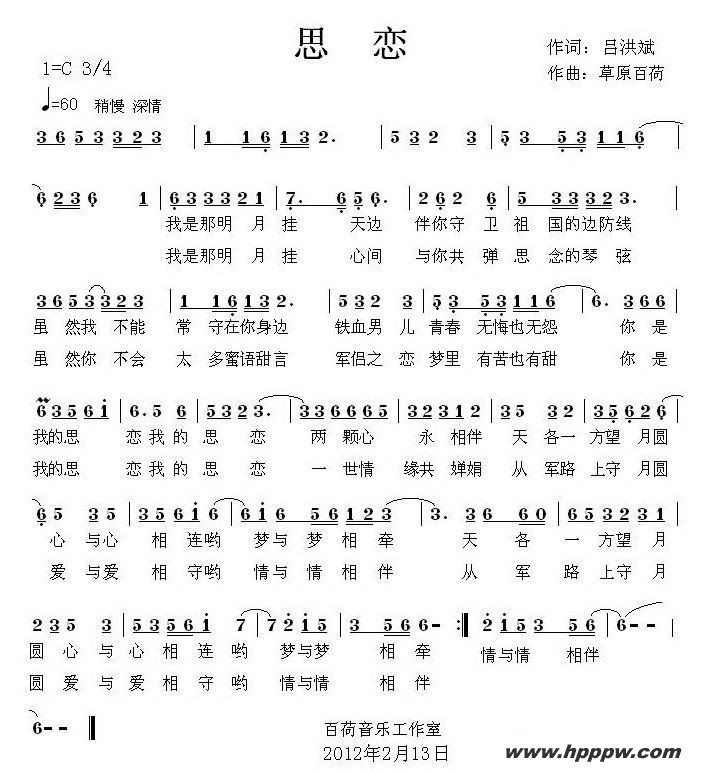 思 恋
作词：吕洪斌
1=C 3/4
作曲：草原百荷
♩=60 稍慢 深情
3 6 5 3 3 2 3 | 1 1 6 1 3 2. | 5 3 2 3 | 5 3 5 3 1 1 6
6 2 3 6 1 | 6 3 3 3 2 1 | 7. 6 5 6. | 2 6 2 6 | 5 5 3 3 2 3.
我是那明 月 挂 天边 伴你守 卫 祖 国的边防线
我是那明 月 挂 心间 与你共 弹 思 念的琴 弦
3 6 5 3 3 2 3 | 1 1 6 1 3 2. | 5 3 2 3 | 5 3 5 3 1 1 6 | 6. 3 6 6
虽 然我 不能 常 守在你身边 铁血男 儿 青春 无悔也无怨 你 是
虽 然你 不会 太 多蜜语甜言 军侣之 恋 梦里 有苦也有甜 你 是
6 3 5 6 i | 6. 5 6 | 5 3 2 3. | 3 3 6 6 6 5 | 3 2 3 1 2 | 5 5 3 2 | 3 5 6 2 6
我的思 恋我 的 思 恋 两 颗心 永 相伴 天 各一 方望 月圆
我的思 恋我 的 思 恋 一 世情 缘共 婵娟 从 军路 上守 月圆
6 5 3 5 | 3 5 5 6 i 7 | 6 i 6 5 6 1 2 3 | 3. 3 6 6 0 | 5 6 5 3 2 3 1
心 与心 相 连哟 梦与 梦 相 牵 天 各 一 方望 月
爱 与爱 相 守哟 情与 情 相 伴 从 军 路 上守 月
2 3 5 3 | 5 3 5 6 i 7 | 7 2 i 5 | 3 5 6 6 - :‖ 2 i 5 3 5 6 | 6 - -
圆 心 与 心 相 连 哟 梦 与梦 相 牵 情与情 相伴
圆 爱 与 爱 相 守 哟 情 与情 相 伴
6 - - ‖
百荷音乐工作室
2012年2月13日
www.hpppw.com